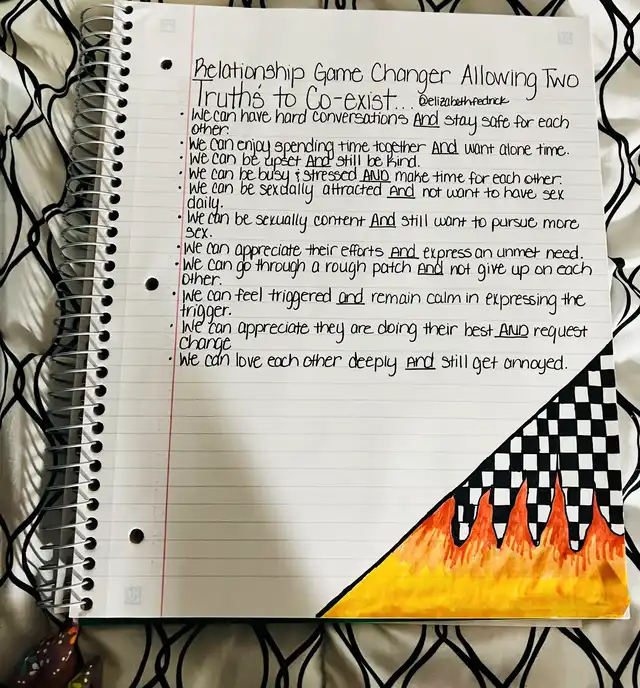 Relationship Game Changer Allowing Two
Truths to Co-exist... @elizabethfedrick
• We can have hard conversations And stay safe for each
other.
• We can enjoy spending time together And want alone time.
• We can be upset And still be kind.
• We can be busy & stressed AND make time for each other.
• We can be sexually attracted And not want to have sex
daily.
• We can be sexually content And still want to pursue more
sex.
• We can appreciate their efforts And express an unmet need.
• We can go through a rough patch And not give up on each
other.
• We can feel triggered and remain calm in expressing the
trigger.
• We can appreciate they are doing their best AND request
change
• We can love each other deeply And still get annoyed.